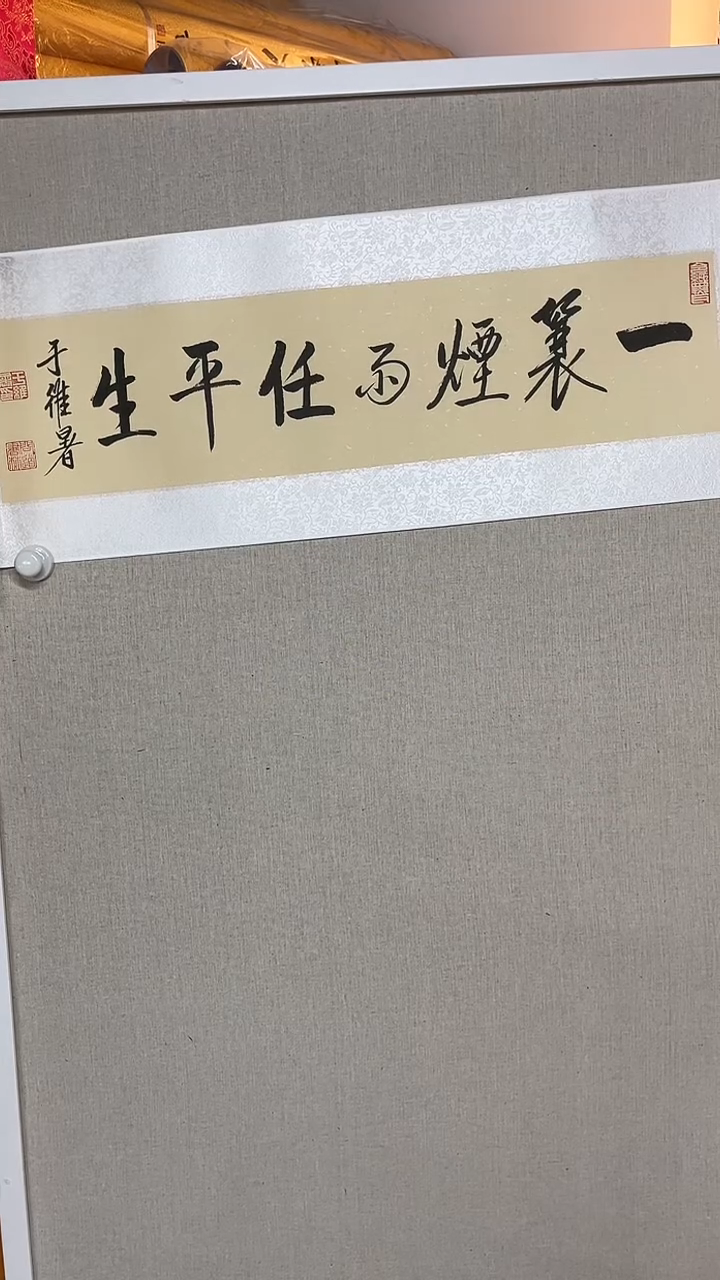 一蓑煙雨任平生
于維暑